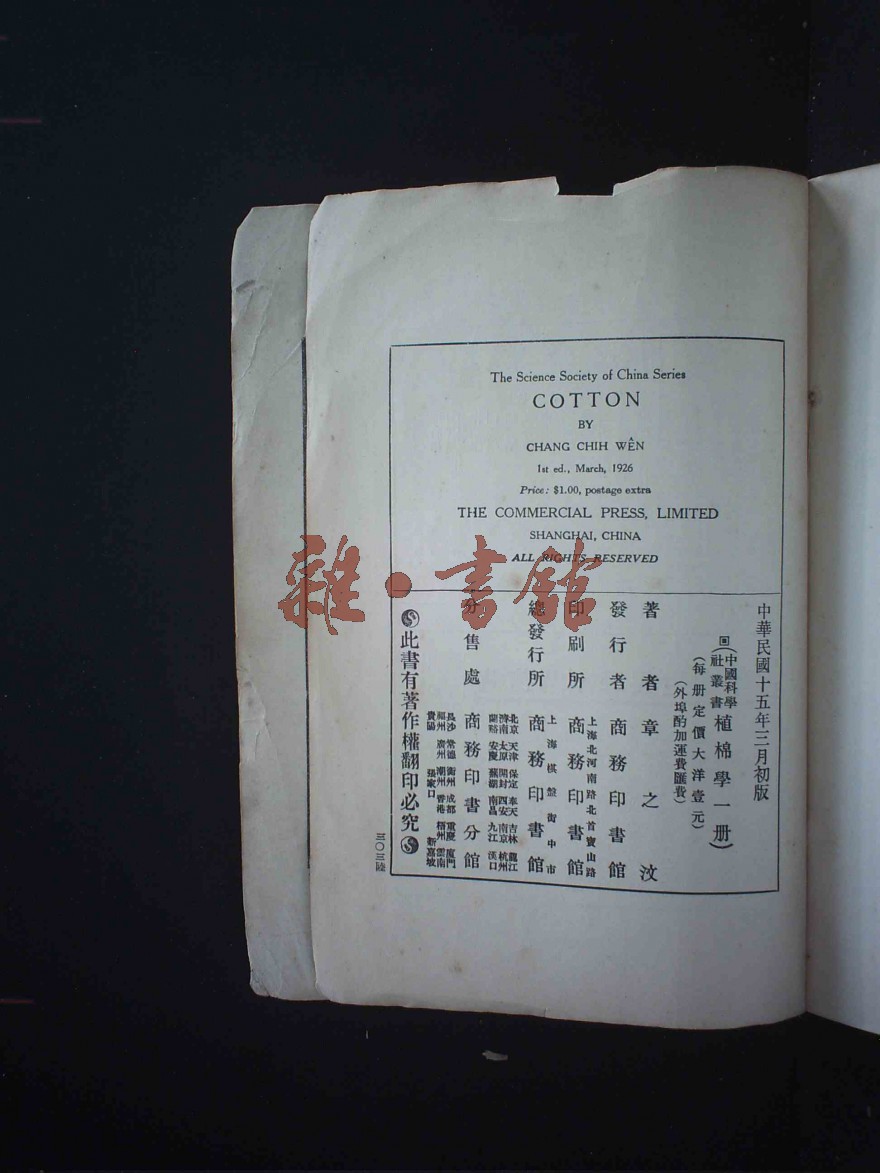 The Science Society of China Series
COTTON
BY
CHANG CHIH WÊN
1st ed., March, 1926
Price: $1.00, postage extra
THE COMMERCIAL PRESS, LIMITED
SHANGHAI, CHINA
ALL RIGHTS RESERVED
雜·書館
中華民國十五年三月初版
(中國科學社叢書)植棉學一册)
(每册定價大洋壹元)
(外埠酌加運費匯費)
著者章之汶
發行者商務印書館
上海北河南路北首寶山路
印刷所商務印書館
上海棋盤街中市
總發行所商務印書館
北京天津保定奉天吉林龍江
濟南太原開封西安南京杭州
蘭谿安慶蕪湖南昌九江漢口
分售處商務印書分館
長沙常德衡州成都重慶廈門
福州廣州潮州香港梧州雲南
貴陽張家口新嘉坡
此書有著作權翻印必究
三〇三陸